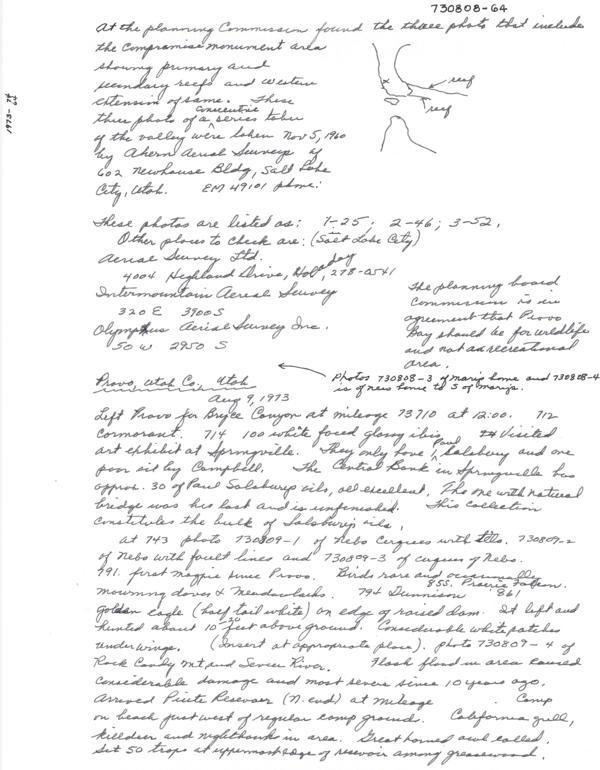 730808-64
1973-74
64
At the planning Commission found the three photo that include
the Compromise monument area
showing primary and
secondary reefs and western
extension of same. These
three photo of a consecutive series taken
of the valley were taken Nov 5, 1960
by Ahern Aerial Surveys of
602 Newhouse Bldg, Salt Lake
City, Utah. EM 49101 phone:
reef
reef
x
These photos are listed as: 1-25; 2-46; 3-52,
Other places to check are: (Salt Lake City)
Aerial Survey Ltd.
4004 Highland Drive, Holladay, 278-0541
Intermountain Aerial Survey
320 E 3900 S
Olympus Aerial Survey Inc.
50 W 2950 S
The planning board
Commission is in
agreement that Provo
Bay should be for wildlife
and not a recreational
area.
Photos 730808-3 of Marij's home and 730808-4
is of new home to S of Marij's.
Provo, Utah Co., Utah
Aug 9, 1973
Left Provo for Bryce Canyon at mileage 73710 at 12:00. 712
Cormorant. 714 100 white faced glossy ibis. Visited
art exhibit at Springville. They only have 1 Paul Salisbury and one
poor oil by Campbell. The Central Bank in Springville has
approx. 30 of Paul Salsbury oils, all excellent. The one with natural
bridge was his last and is unfinished. This collection
constitutes the bulk of Salsbury oils.
At 743 photo 730809-1 of Nebo Cirques with tele. 730809-2
of Nebo with fault lines and 730809-3 of cirques of Nebo.
791. first magpie since Provo. Birds rare and occasionally
mourning doves & Meadowlarks. 794 Gunnison 855. Prairie Falcon. 861
golden eagle (half tail white) on edge of raised dam. It left and
hunted about 10-20 feet above ground. Considerable white patches
under wings. (Insert at appropriate place). photo 730809-4 of
Rock Candy Mt and Sevier River. Flash flood in area caused
considerable damage and most severe since 10 years ago.
Arrived Piute Reservoir (N. end) at mileage . Camp
on beach just west of regular camp ground. California gull,
killdeer and nighthawk in area. Great horned owl called.
Set 50 traps at uppermost edge of resevoir among greasewood.